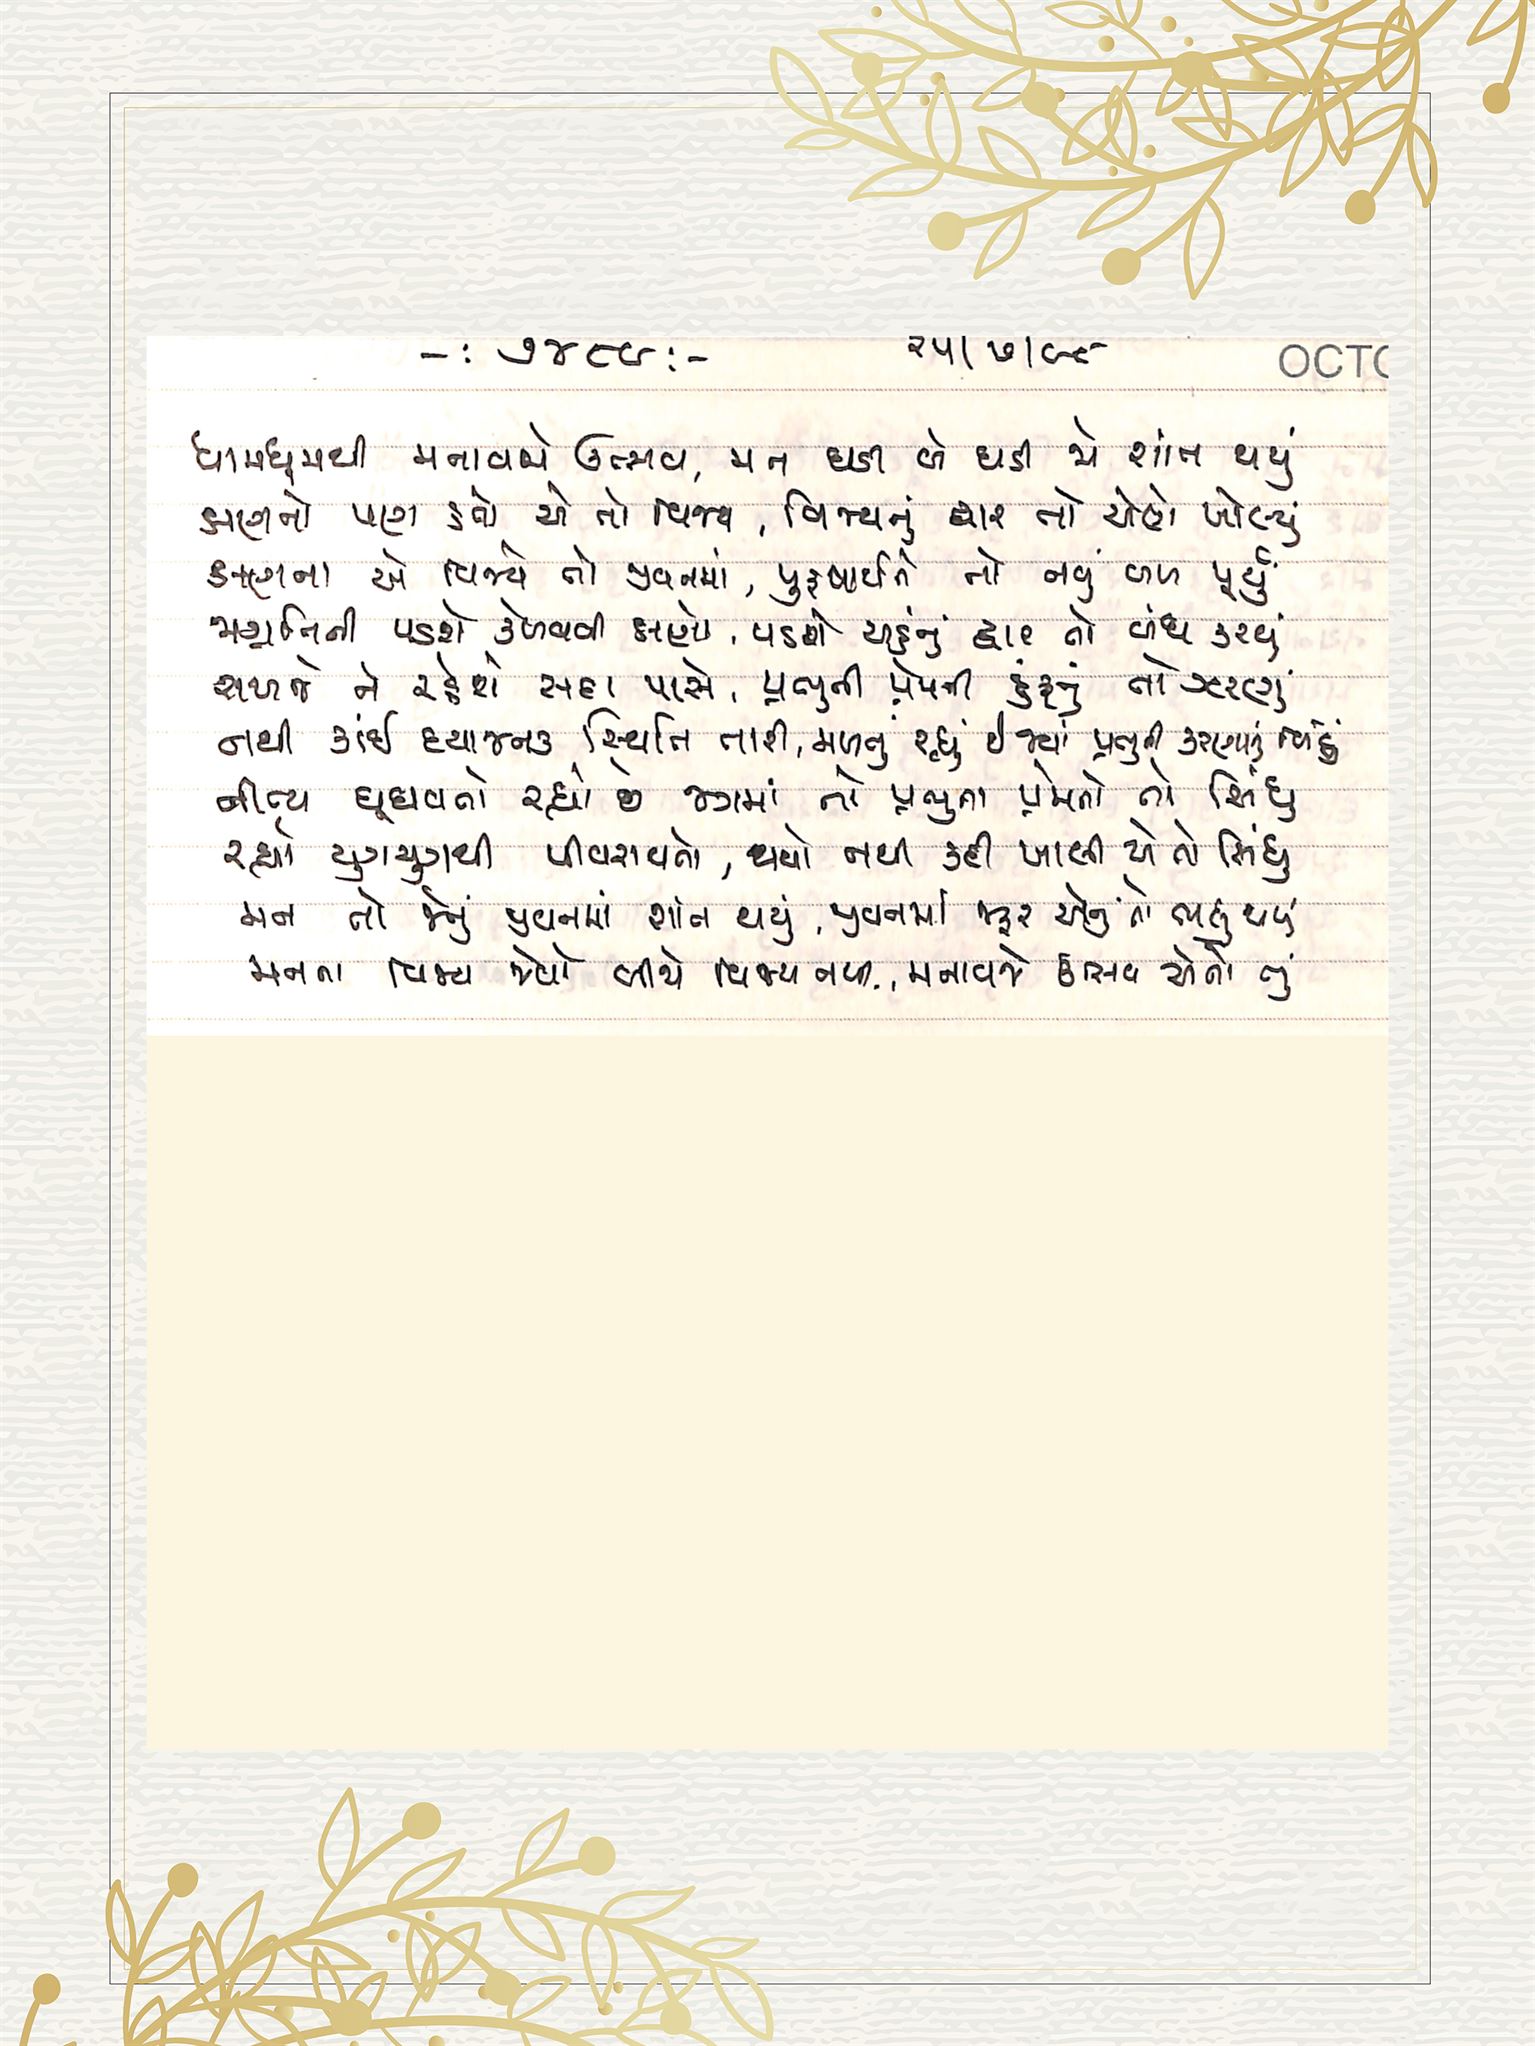 -: ૭૪૮૬ :- ૨૫/૭/૯૮ OCTO
ધામધૂમથી મનાવજો ઉત્સવ, મન ઘડી બે ઘડી જો શાંત થયું
ક્ષણનો પણ હતો એ તો વિજય, વિજયનું દ્વાર તો એણે ખોલ્યું
ક્ષણના એ વિજયે તો જીવનમાં, પુરૂષાર્થને તો નવું બળ પૂર્યું
જાગૃતિની પડશે કેળવવી ક્ષણો, પડશે અહંનું દ્વાર તો બંધ કરવું
સમજે ને રહેશે સદા પાસે, પ્રભુની પ્રેમની હુંફનું તો ઝરણું
નથી કાંઈ દયાજનક સ્થિતિ તારી, મળતું રહ્યું છે જ્યાં પ્રભુની કરુણાનું બિંદુ
નીત્ય ઘૂઘવતો રહ્યો છે જગમાં તો પ્રભુના પ્રેમનો તો સિંધુ
રહ્યો યુગયુગથી પીવરાવતો, થયો નથી કદી ખાલી એ તો સિંધુ
મન તો જેનું જીવનમાં શાંત થયું, જીવનમાં જરૂર એનું તો ભલું થયું
મનના વિજય જેવો બીજો વિજય નથી, મનાવજે ઉત્સવ એનો તું